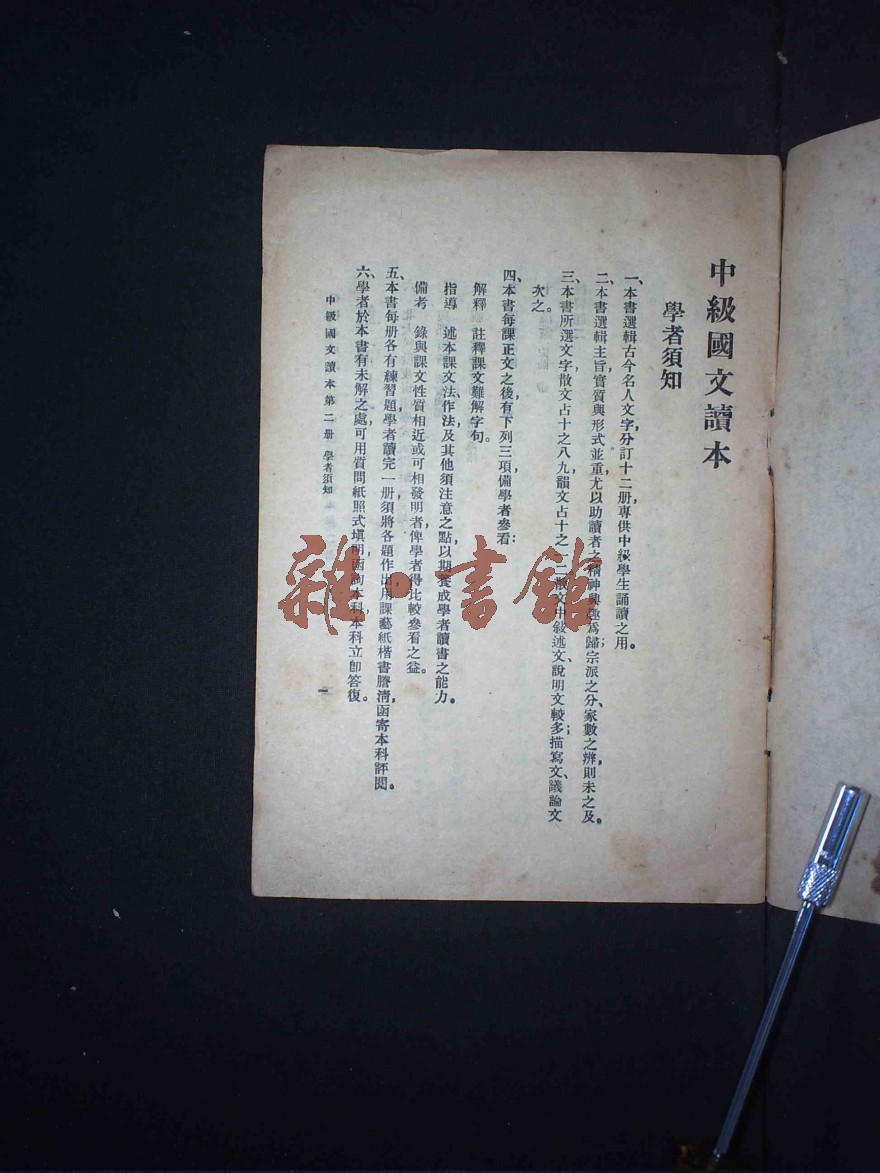 中級國文讀本
學者須知
一、本書選輯古今名人文字，分訂十二册，專供中級學生誦讀之用。
二、本書選輯主旨，實質與形式並重，尤以助讀者之精神興趣爲歸；宗派之分、家數之辨，則未之及。
三、本書所選文字，散文占十之八九，韻文占十之一二；散文中敍述文、說明文較多；描寫文、議論文
次之。
四、本書每課正文之後，有下列三項，備學者參看：
解釋　註釋課文難解字句。
指導　述本課文法、作法，及其他須注意之點，以期養成學者讀書之能力。
備考　錄與課文性質相近或可相發明者，俾學者得比較參看之益。
五、本書每册各有練習題，學者讀完一册，須將各題作出，用課藝紙楷書謄淸，函寄本科評閱。
六、學者於本書有未解之處，可用質問紙照式塡明，函詢本科，本科立卽答復。
中級國文讀本第二册　學者須知
一
雜·書館